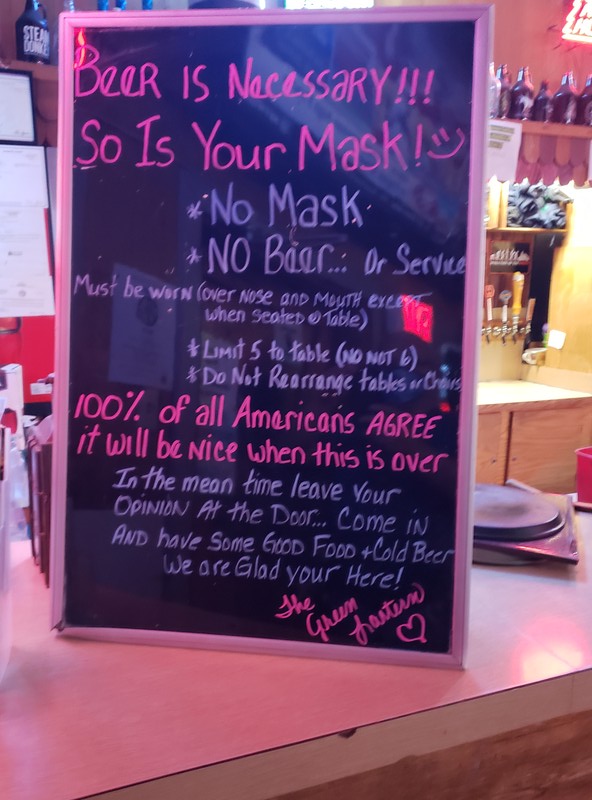 STEAM
DONKEY
Beer is Necessary!!!
So Is Your Mask!
* No Mask
* NO Beer... Or Service
Must be worn (over Nose and Mouth except
when seated @ Table)
* Limit 5 to table (NO NOT 6)
* Do Not Rearrange tables or Chairs
100% of all Americans AGREE
it will be Nice when this is over
In the mean time leave Your
OPINION At the Door... Come in
AND have Some GOOD FOOD + Cold Beer
We are Glad your Here!
The
Green
Lantern